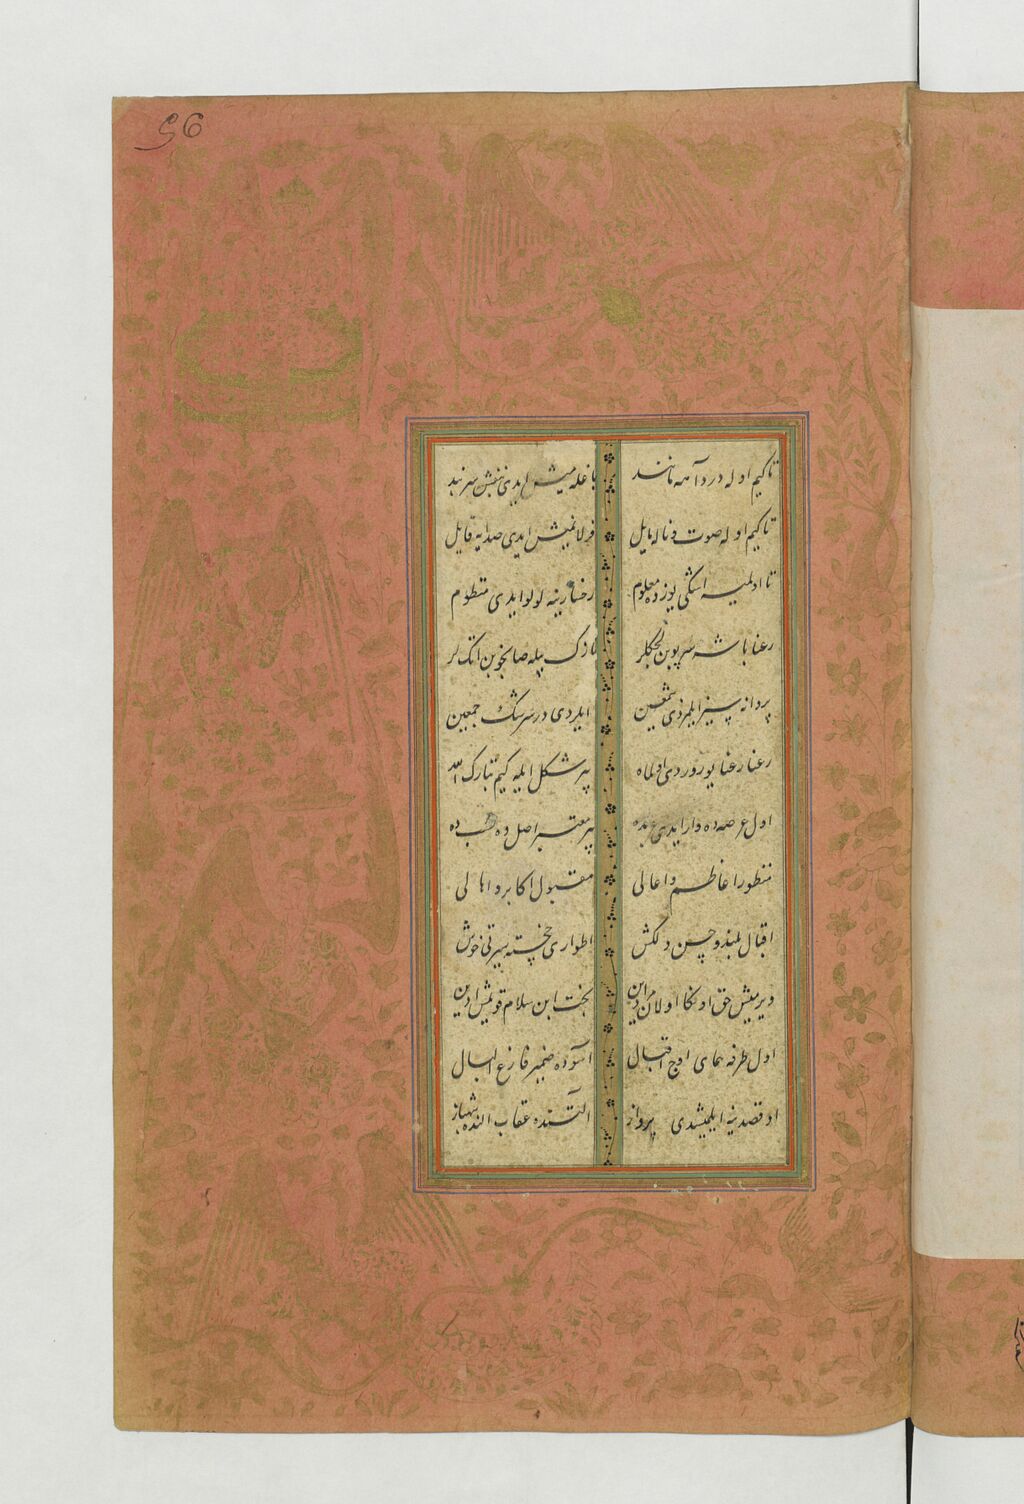 56
تا کیم اوله درد آهه مانند باغله‌میش ایدی بنفشه سربند
تا کیم اوله صوت و ناله مایل قرلانمیش ایدی صدایه قایل
تا اولمیه اشکی یوزده معلوم رخسارینه لولو ایدی منظوم
رعنا باشه سرپوبن لچکلر نازک بیله صالخوبن اتکلر
پروانه سیز ایلمزدی شمعین ایلردی در سرشک جمعین
رعنا رعنا یوروردی اولماه بیر شکل ایله کیم تبارک الله
اول عرصه‌ده وار ایدی بیر معتبر اصل ده نسب ده
منظور اعاظم و اعالی مقبول اکابر و اهالی
اقبال بلند و حسن دلکش اطواری خجسته سیرتی خوش
ویرمیش حق اونکا اولان بخت ابن سلام قویمش ادین
اول طرفه همای اوج اقبال آسوده ضمیر فارغ البال
او قصدینه ایلمیشدی پرواز آلتنده عقاب النده شهباز